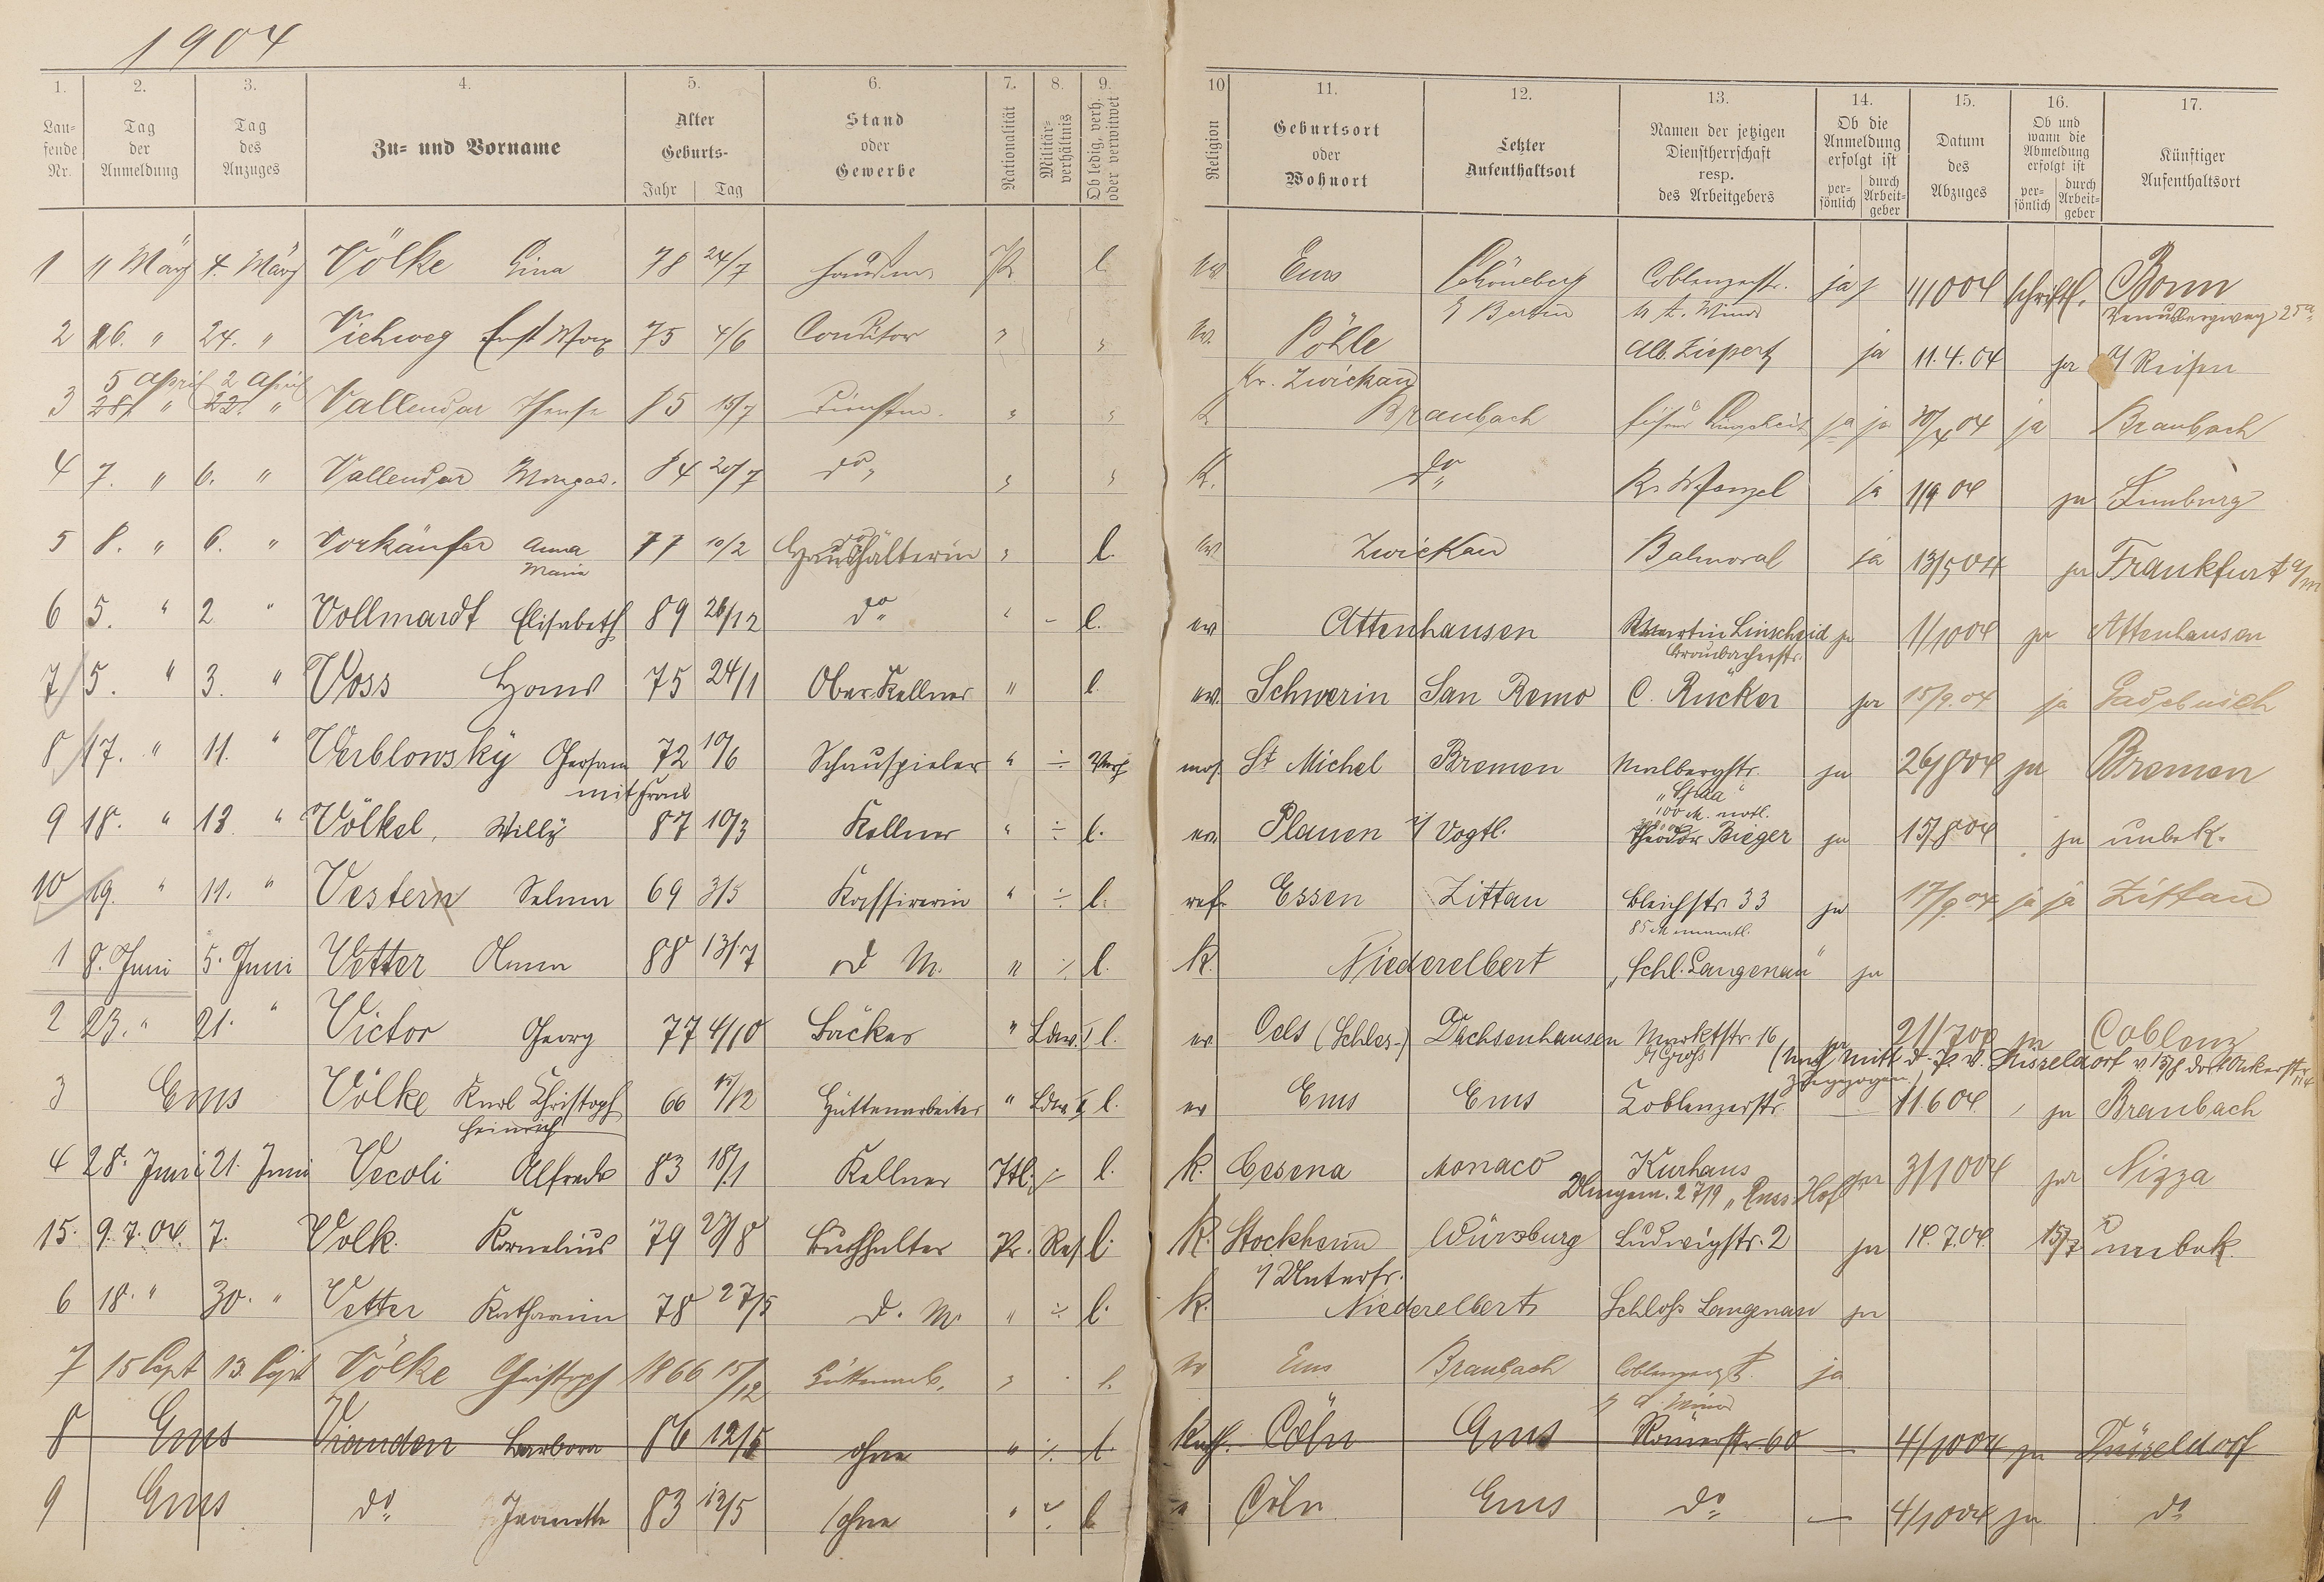 1904
1. 2. 3. 4. 5. 6. 7. 8. 9. 10 11. 12. 13. 14. 15. 16. 17.
Lau-
fende
Nr.
Tag
der
Anmeldung
Tag
des
Anzuges
Zu- und Vorname
Alter
Geburts-
Jahr Tag
Stand
oder
Gewerbe
Nationalität
Militär-
verhältnis
Ob ledig, verh.
oder verwitwet
Religion
Geburtsort
oder
Wohnort
Letzter
Aufenthaltsort
Namen der jetzigen
Dienstherrschaft
resp.
des Arbeitgebers
Ob die
Anmeldung
erfolgt ist
per-
sönlich
durch
Arbeit-
geber
Datum
des
Abzuges
Ob und
wann die
Abmeldung
erfolgt ist
per-
sönlich
durch
Arbeit-
geber
Künftiger
Aufenthaltsort
1 11 März 4. März Völke Lina 78 24/7 Pr l. ev Ems Schöneberg Coblenzerstr. ja 1/1004 schriftl. Bonn
b/ Berlin Venusbergweg 25a
2 26. " 24. " Viehweg Ernst Max 75 4/6 Conditor " " ev. Pöhle Alb. Ziepert ja 11.4.04 ja a/ Reisen
Kr. Zwickau
5 April 2 April
3 28. " 22. " Vallendar 85 15/7 Dienstm. " " K Braubach ja ja 30/4 04 ja Braubach
4 7. " 6. " Vallendar Margar. 84 20/7 do " " " K. do " ja 1/9 04 ja Limburg
5 8. " 6. " Vorkäufer Anna 77 10/2 Haushälterin " l. ev Zwickau Balmoral ja 13/5 04 ja Frankfurt a/m
Maria
6 5. " 2 " Vollmardt Elisabeth 89 26/12 do " - l. ev Attenhausen Martin Linscheid ja 1/1004 ja Attenhausen
Braubacherstr.
7 5. " 3. " Voss Hans 75 24/1 Ober Kellner " l. ev. Schwerin San Remo C. Rücker ja 15/9.04 ja Gadebusch
8 17. " 11. " Verblowsky Gersam 72 10/6 Schauspieler " ÷ Verh mos. St Michel Bremen Malbergstr. ja 26/804 ja Bremen
mit Frau
9 18. " 13 " Völkel, Willy 87 10/3 Kellner " ÷ l. ev. Plauen i/ Vogtl. Theodor Bieger ja 15/804 ja unbek.
10 19. " 11. " Vestern Selma 69 3/5 Kassirerin " ÷ l. ref. Essen Zittau Bleichstr. 33 ja 17/9 04 ja ja Zittau
85 M monatl.
1 8. Juni 5. Juni Vetter Anna 88 13/7 d M. " ./. l. K. Niederelbert „Schl. Langenau" ja
2 23. " 21. " Victor Georg 77 4/10 Bäcker " Ldw. I l. ev Oels (Schles.) Dachsenhausen Marktstr. 16 ja 21/704 ja Coblenz
b/ Groß
3 Ems Völke Karl Christoph 66 15/12 Hüttenarbeiter " Ldw. II l. ev Ems Ems Coblenzerstr. 11.6 04. ja Braubach
Heinrich
4 28. Juni 21. Juni Vecoli Alfred 83 18/1 Kellner Itl. ÷ l. k. Cesena Monaco Kurhaus ja 3/1004 ja Nizza
15. 9.7.04. 7. Volk. Kornelius 79 23/8 Buchhalter Pr. Res l. K. Stockheim Würzburg Ludwigstr. 2 ja 14.7.04. 15/7 unbek.
i/ Unterfr.
6 18. " 30. " Vetter Katharina 78 27/5 d. M. " ÷ l. k. Niederelbert Schloß Langenau ja
7 15 Sept 13. Sept Völke Christoph 1866 15/12 Hüttenarb. " . l. ev Ems Braubach Coblenzerst. ja
8 Ems Vianden Barbara 86 12/5 ohne " ./. l. Kath. Cöln Ems Römerstr. 60 — 4/1004 ja Düsseldorf
9 Ems do Jeanette 83 12/5 ohne " ÷ l " Cöln Ems do — 4/1004 ja do